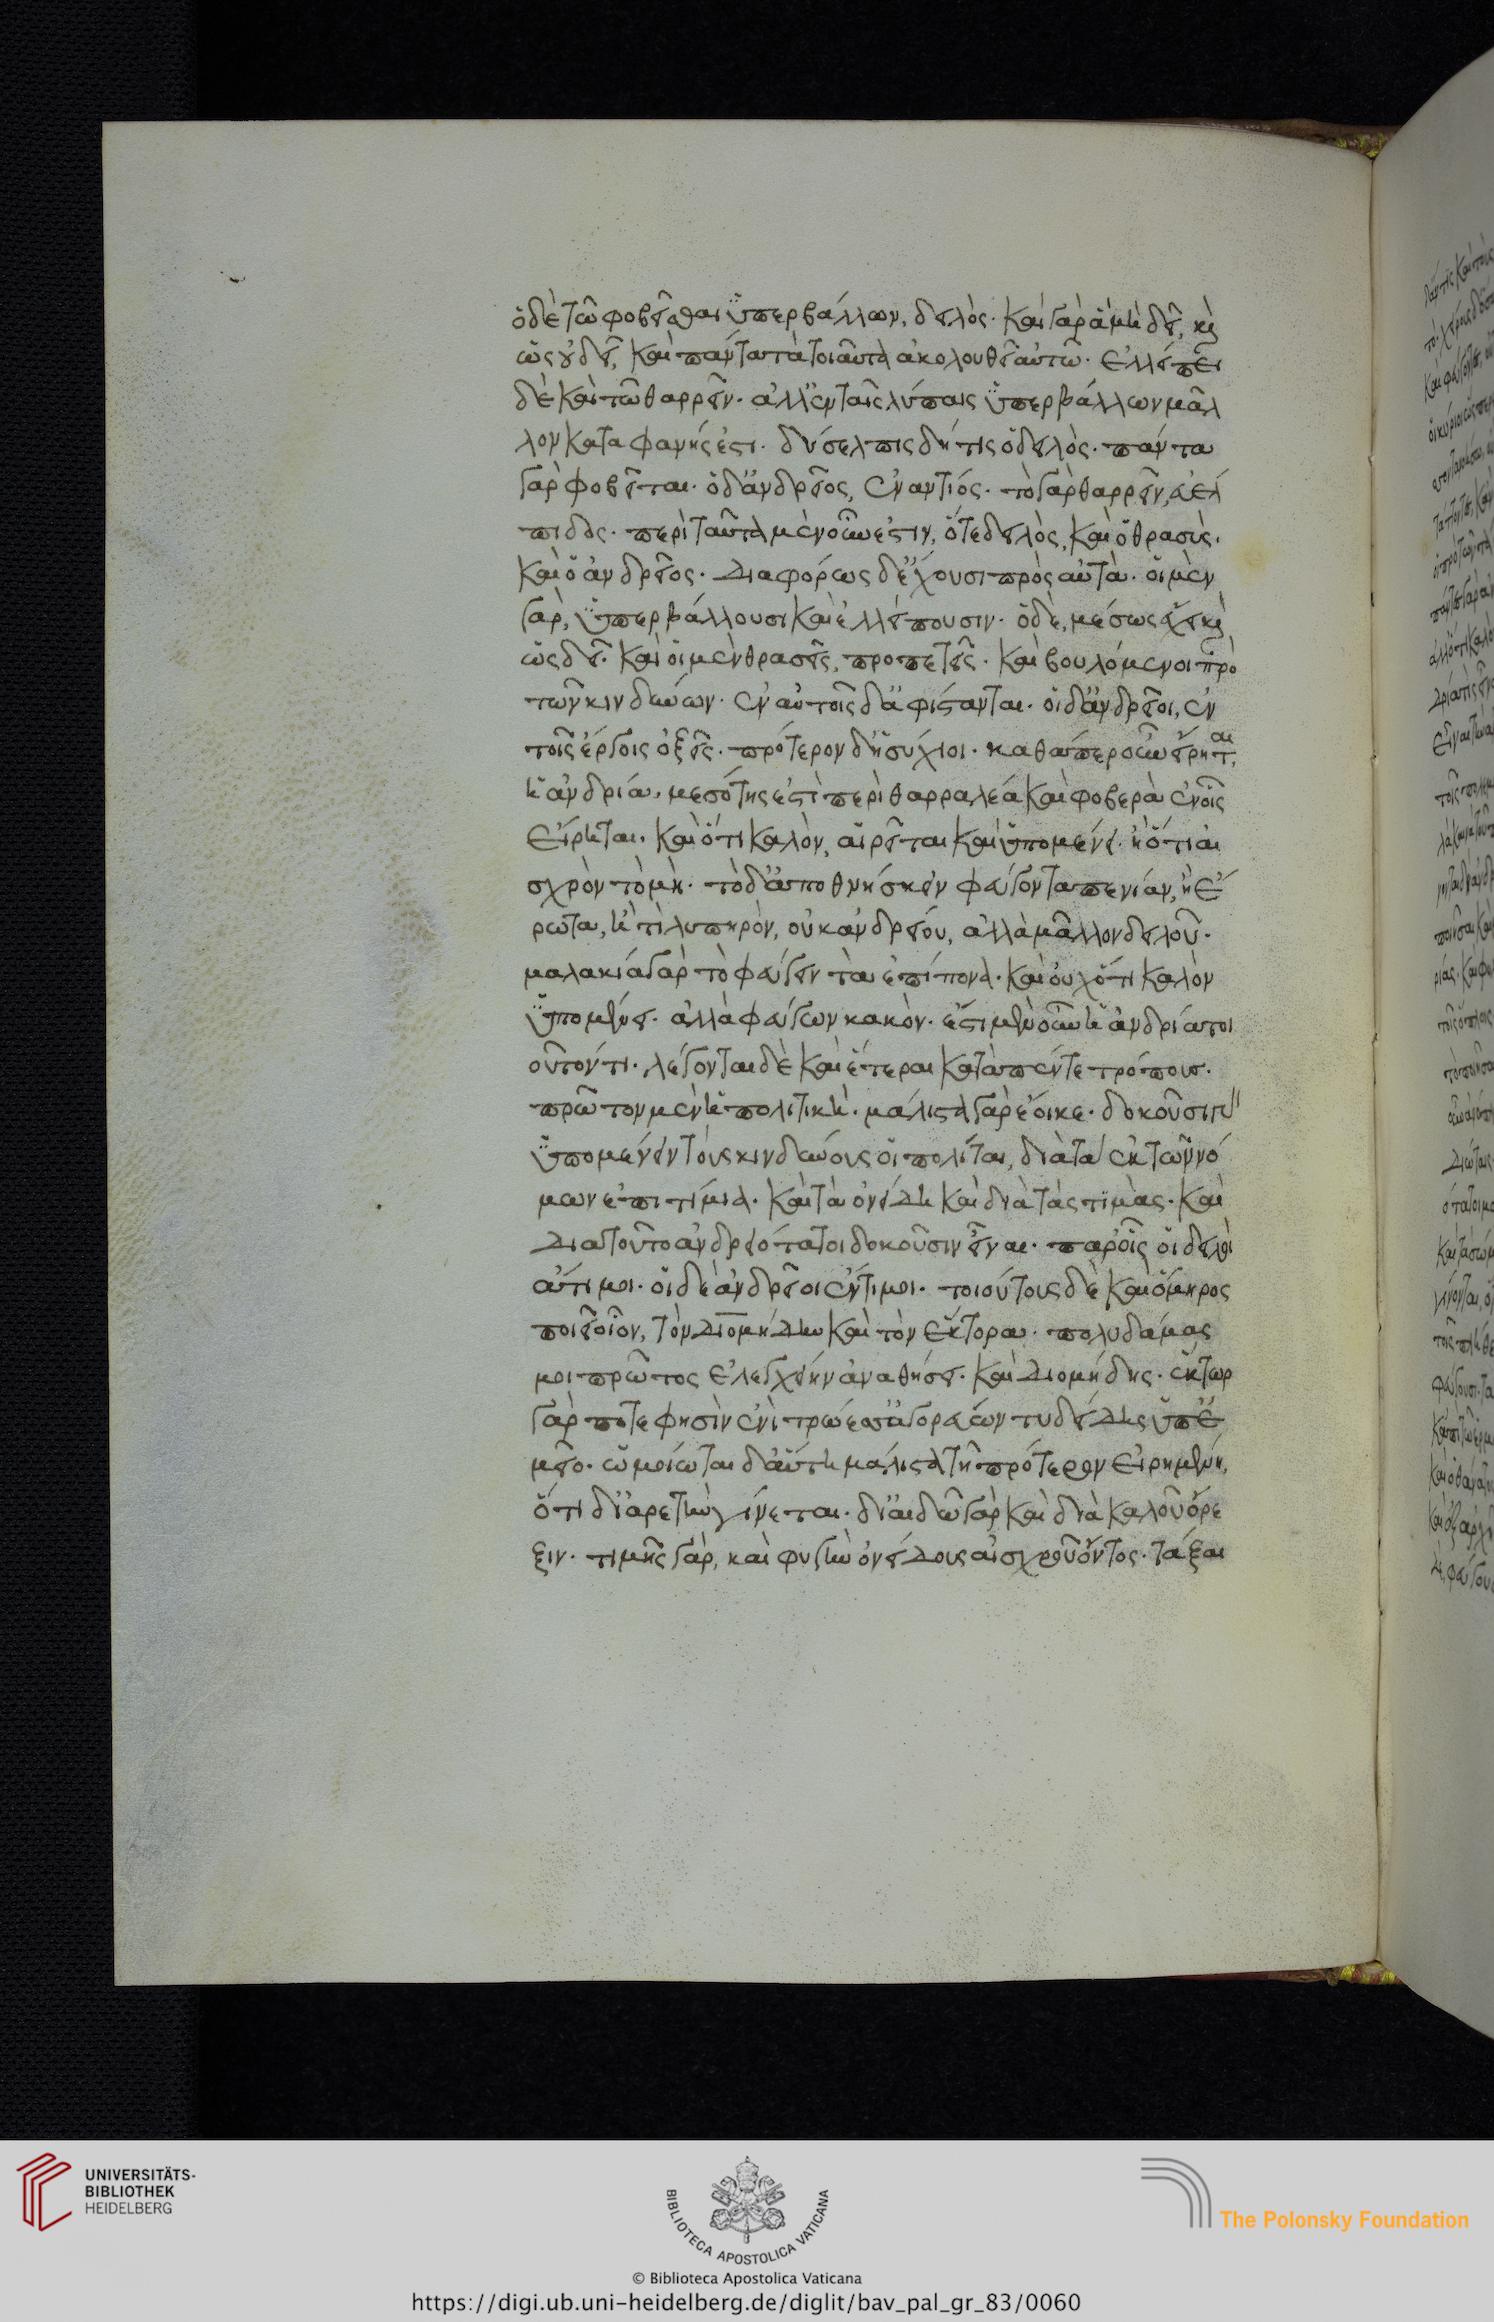 ὁ δὲ τῶ φοβεῖσθαι ὑπερβάλλων, δειλὸς· καὶ γὰρ ἃ μὴ δεῖ, καὶ
ὡς οὐ δεῖ, καὶ πάντα τὰ τοιαῦτα ἀκολουθεῖ αὐτῶ· ἐλλείπει
δὲ καὶ τῶ θαρρεῖν· ἀλλ' ἐν ταῖς λύπαις ὑπερβάλλων μᾶλ
λον καταφανής ἐστι· δύσελπις δή τις ὁ δειλὸς· πάντα
γὰρ φοβεῖται· ὁ δ' ἀνδρεῖος, ἐναντίος· τὸ γὰρ θαρρεῖν, εὐέλ
πιδος· περὶ ταῦτα μὲν οὖν ἐστιν, ὅ τε δειλὸς, καὶ ὁ θρασὺς·
καὶ ὁ ἀνδρεῖος· διαφόρως δ' ἔχουσι πρὸς αὐτὰ· οἱ μὲν
γὰρ, ὑπερβάλλουσι καὶ ἐλλείπουσιν· ὁ δὲ, μέσως ἔχει καὶ
ὡς δεῖ· καὶ οἱ μὲν θρασεῖς, προπετεῖς· καὶ βουλόμενοι πρὸ
τῶν κινδύνων· ἐν αὐτοῖς δ' ἀφίστανται· οἱ δ' ἀνδρεῖοι, ἐν
τοῖς ἔργοις ὀξεῖς· πρότερον δ' ἡσύχιοι· καθάπερ οὖν εἴρηται,
ἡ ἀνδρία, μεσότης ἐστὶ περὶ θαρραλέα καὶ φοβερὰ ἐν οἷς
εἴρηται· καὶ ὅτι καλὸν, αἱρεῖται καὶ ὑπομένει· ἢ ὅτι αἰ
σχρὸν τὸ μὴ· τὸ δ' ἀποθνήσκειν φεύγοντα πενίαν, ἢ ἔ
ρωτα, ἤ τι λυπηρὸν, οὐκ ἀνδρείου, ἀλλὰ μᾶλλον δειλοῦ·
μαλακία γὰρ τὸ φεύγειν τὰ ἐπίπονα· καὶ οὐχ ὅτι καλὸν
ὑπομένει· ἀλλὰ φεύγων κακὸν· ἔστι μὲν οὖν ἡ ἀνδρία τοι
οῦτόν τι· λέγονται δὲ καὶ ἕτεραι κατὰ πέντε τρόπους·
πρῶτον μὲν ἡ πολιτικὴ· μάλιστα γὰρ ἔοικε· δοκοῦσι γὰρ
ὑπομένειν τοὺς κινδύνους οἱ πολῖται, διὰ τὰ ἐκ τῶν νό
μων ἐπιτίμια· καὶ τὰ ὀνείδη καὶ διὰ τὰς τιμὰς· καὶ
διὰ τοῦτο ἀνδρειότατοι δοκοῦσιν εἶναι· παρ' οἷς οἱ δειλοὶ
ἄτιμοι· οἱ δὲ ἀνδρεῖοι ἔντιμοι· τοιούτους δὲ καὶ ὅμηρος
ποιεῖ οἷον, τὸν διομήδην καὶ τὸν ἕκτορα· πολυδάμας
μοι πρῶτος ἐλεγχείην ἀναθήσει· καὶ διομήδης· ἕκτωρ
γάρ ποτε φησὶν ἐνὶ τρώεσσ' ἀγορεύων τυδείδης ὑπ' ἐ
μεῖο· ὡμοίωται δ' αὕτη μάλιστα τῆ πρότερον εἰρημένη,
ὅτι δι' ἀρετὴν γίνεται· δι' αἰδῶ γὰρ καὶ διὰ καλοῦ ὄρε
ξιν· τιμῆς γὰρ, καὶ φυγὴν ὀνείδους αἰσχροῦ ὄντος· τάξαι
UNIVERSITÄTS-
BIBLIOTHEK
HEIDELBERG
BIBLIOTECA APOSTOLICA VATICANA
The Polonsky Foundation
© Biblioteca Apostolica Vaticana
https://digi.ub.uni-heidelberg.de/diglit/bav_pal_gr_83/0060